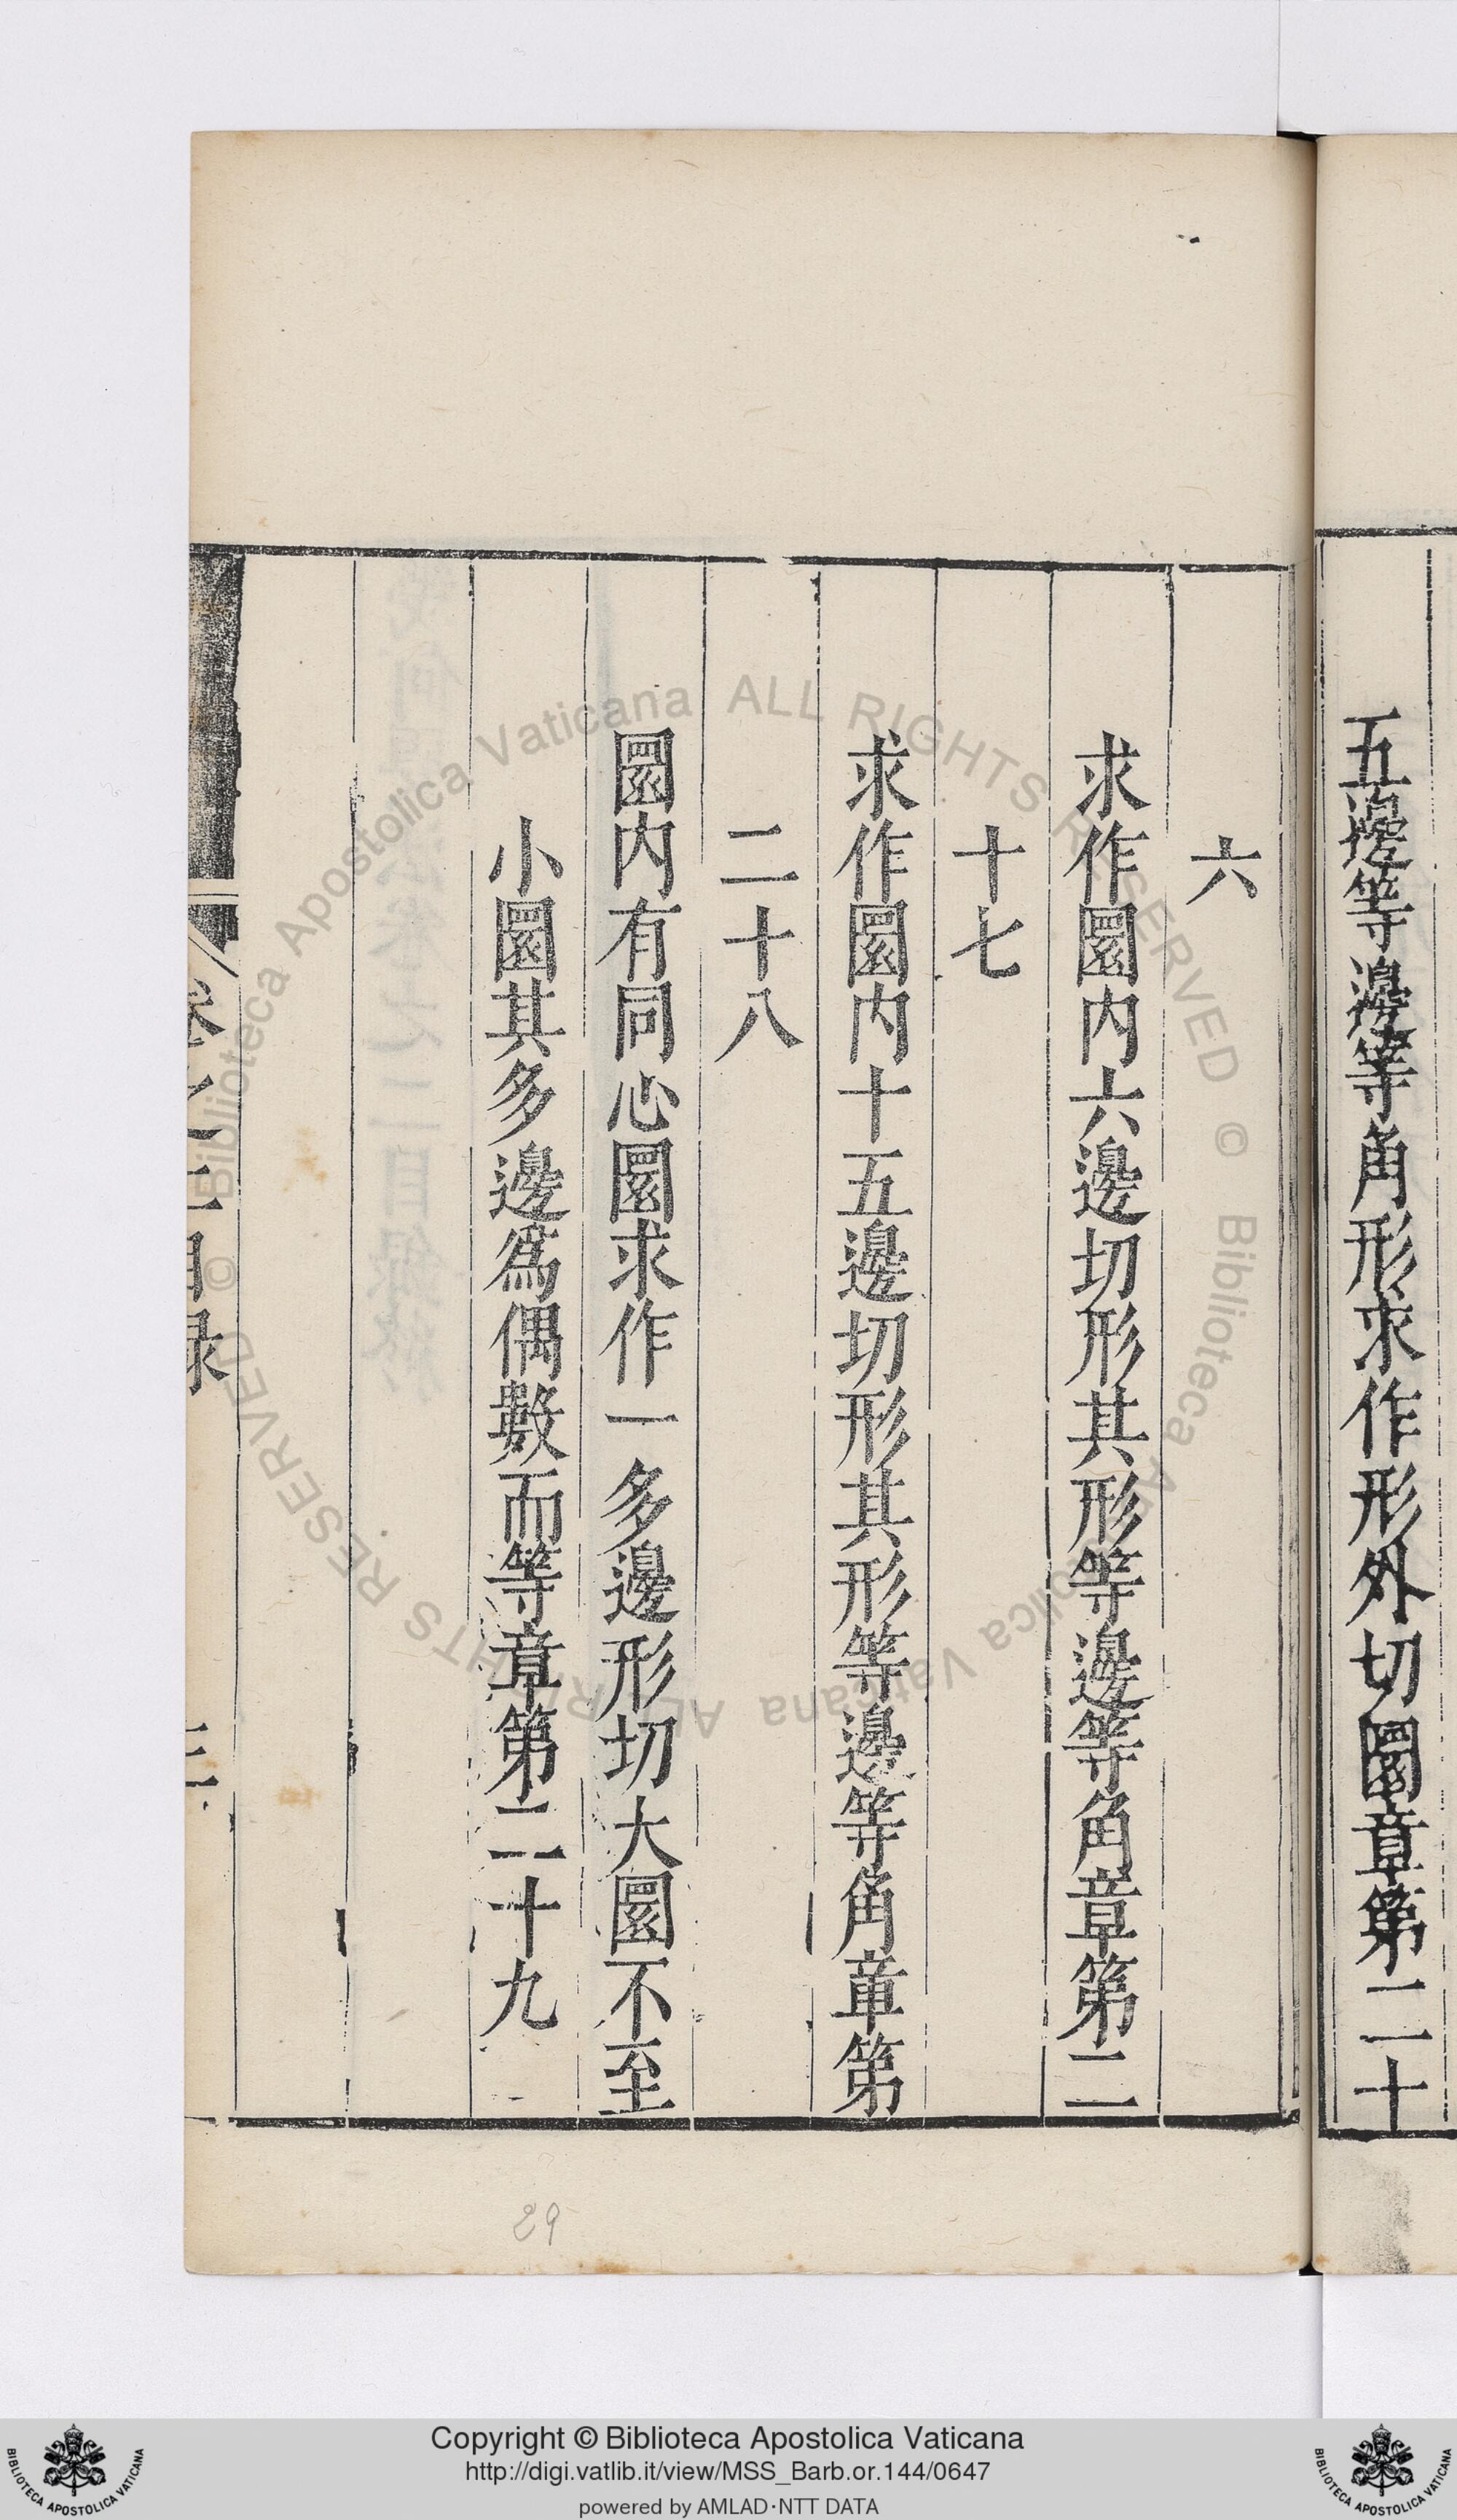 五邊等邊等角形求作形外切圜章第二十
六
求作圜内六邊切形其形等邊等角章第二
十七
求作圜内十五邊切形其形等邊等角章第
二十八
圜内有同心圜求作一多邊形切大圜不至
小圜其多邊爲偶數而等章第二十九
29
© Biblioteca Apostolica Vaticana ALL RIGHTS RESERVED © Biblioteca Apostolica Vaticana ALL RIGHTS RESERVED
Copyright © Biblioteca Apostolica Vaticana
http://digi.vatlib.it/view/MSS_Barb.or.144/0647
powered by AMLAD·NTT DATA
BIBLIOTECA APOSTOLICA VATICANA
BIBLIOTECA APOSTOLICA VATICANA